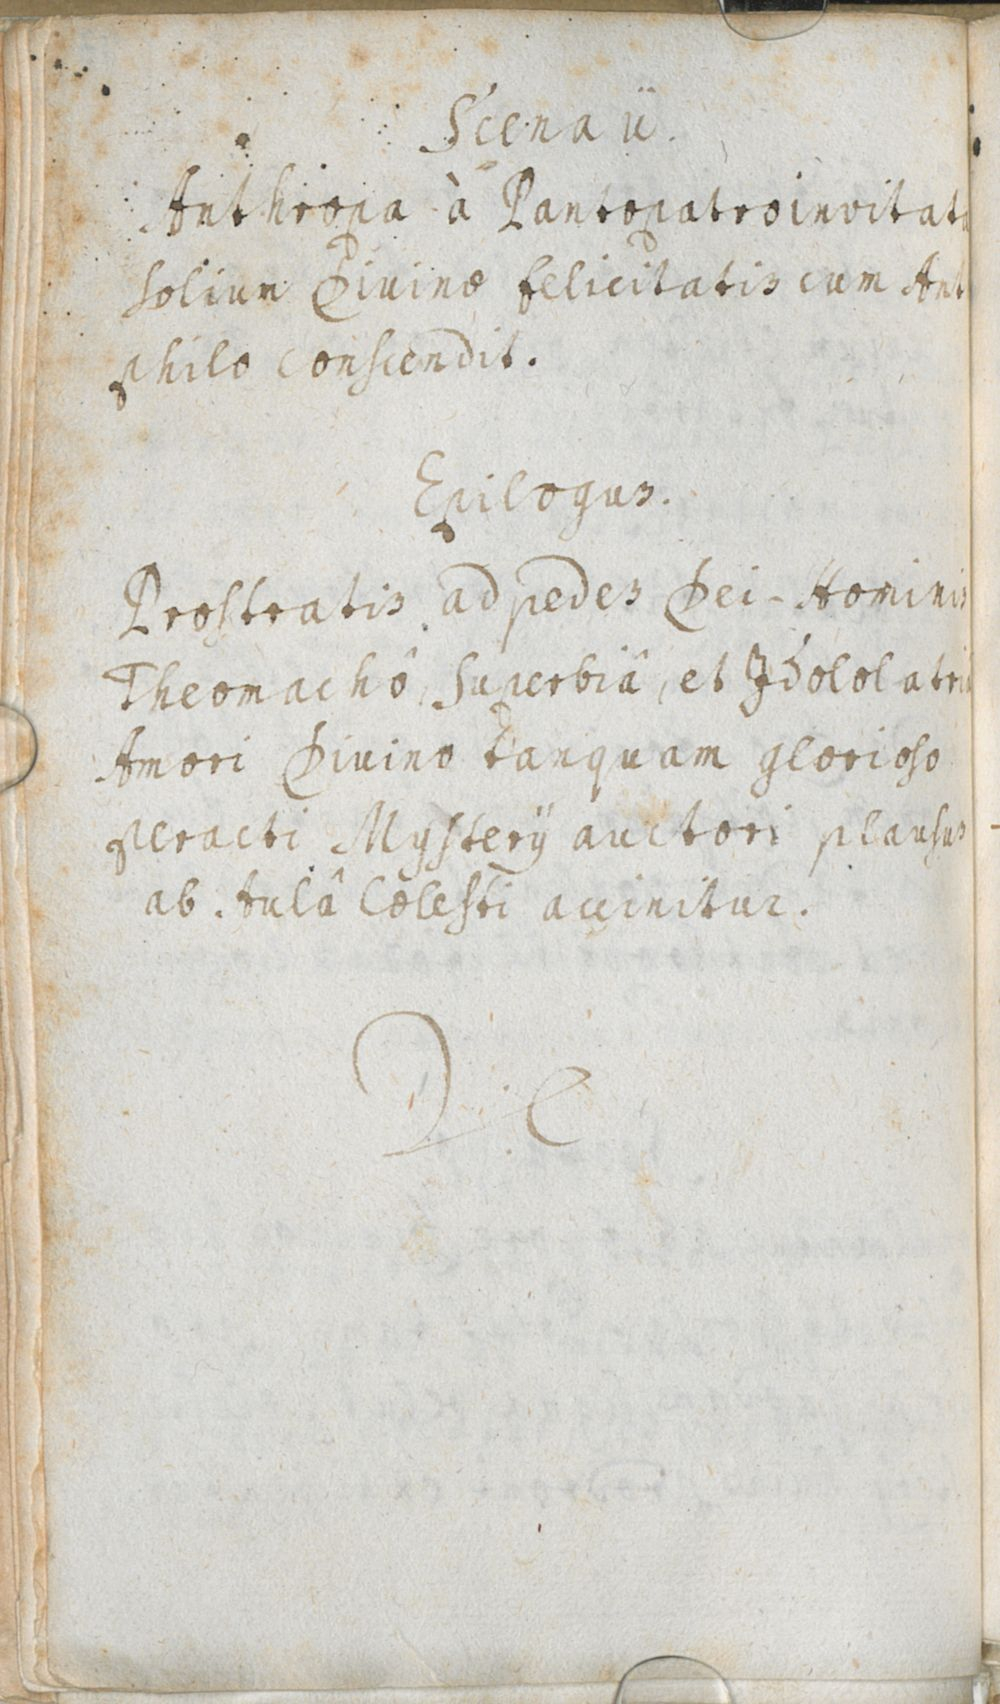 Scena ii.
Anthropa à Pantopatro invitata
solium Divinæ felicitatis cum Ant
philo conscendit.
Epilogus.
Prostratis ad pedes Dei-Hominis
Theomachô, Superbiâ, et Idololatriâ
Amori Divino tanquam glorioso
peracti Mysterÿ auctori plausus
ab Aulâ Cœlesti accinitur.